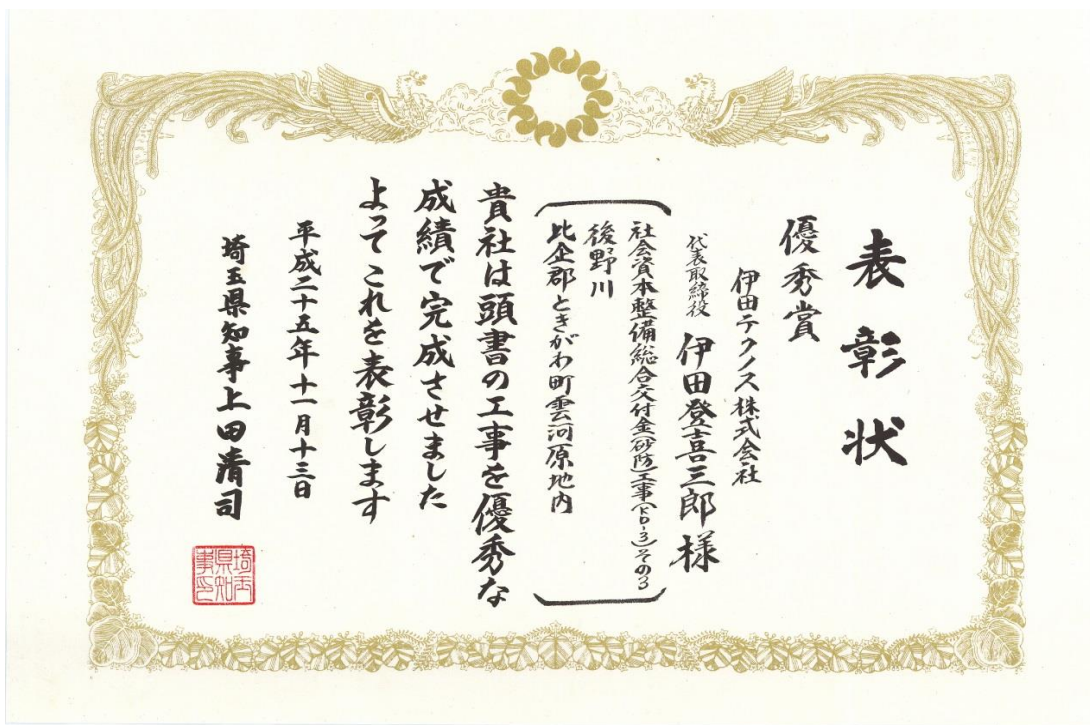 表彰状
優秀賞
伊田テクノス株式会社
代表取締役 伊田登喜三郎様
社会資本整備総合交付金(砂防)工事(ドD-3)その3
後野川
比企郡ときがわ町雲河原地内
貴社は頭書の工事を優秀な
成績で完成させました
よってこれを表彰します
平成二十五年十一月十三日
埼玉県知事上田清司
埼玉
県知
事印